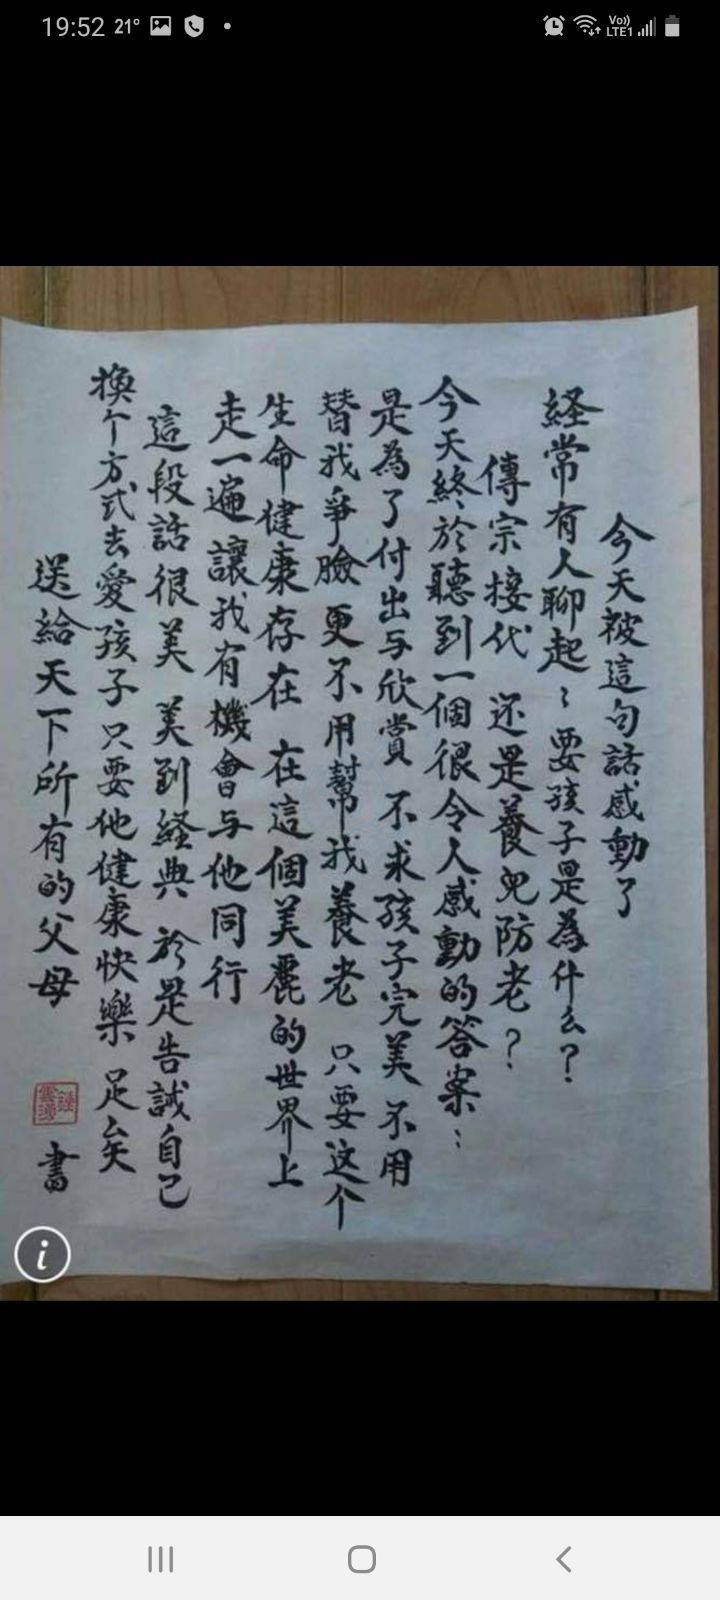 19:52 21°
Vo)) LTE1
今天被這句話感動了
経常有人聊起：要孩子是為什么？
傳宗接代 还是養兒防老？
今天終於聽到一個很令人感動的答案：
是為了付出与欣賞 不求孩子完美 不用
替我爭臉 更不用幫我養老 只要这个
生命健康存在 在這個美麗的世界上
走一遍讓我有機會与他同行
這段話很美 美到経典 於是告誡自己
換个方式去愛孩子只要他健康快樂 足矣
送給天下所有的父母
書
i